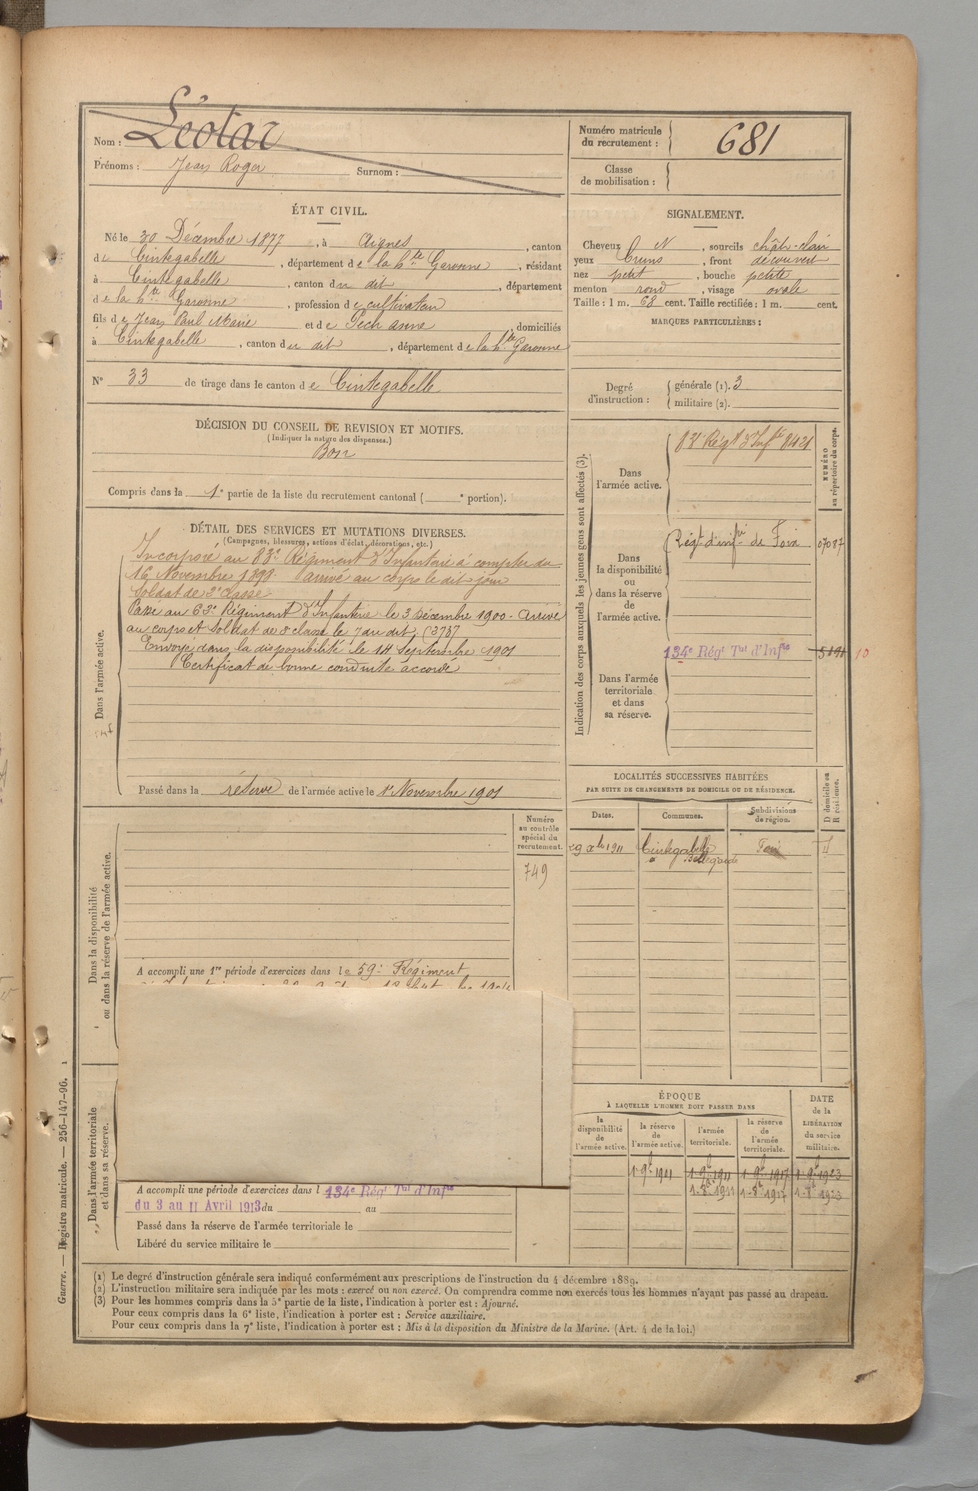 Nom : Léotar
Prénoms : Jean Roger Surnom :
Numéro matricule du recrutement : 681
Classe de mobilisation :
ÉTAT CIVIL.
Né le 30 Décembre 1877, à Aignes, canton
de Cintegabelle, département de la hte Garonne, résidant
à Cintegabelle, canton du dit, département
de la hte Garonne, profession de cultivateur
fils de Jean Paul Marie et de Pech anne, domiciliés
à Cintegabelle, canton du dit, département de la hte Garonne
N° 33 de tirage dans le canton de Cintegabelle
SIGNALEMENT.
Cheveux N, sourcils chât-clair
yeux bruns, front découvert
nez petit, bouche petite
menton rond, visage ovale
Taille : 1 m. 68 cent. Taille rectifiée : 1 m. cent.
MARQUES PARTICULIÈRES :
Degré d'instruction : générale (1). 3
militaire (2).
DÉCISION DU CONSEIL DE REVISION ET MOTIFS.
(Indiquer la nature des dispenses.)
Bon
Compris dans la 1e partie de la liste du recrutement cantonal ( e portion).
DÉTAIL DES SERVICES ET MUTATIONS DIVERSES.
(Campagnes, blessures, actions d'éclat, décorations, etc.)
Dans l'armée active.
Incorporé au 83e Régiment d'Infanterie à compter du
16 Novembre 1899. arrivé au corps le dit jour
Soldat de 2e classe
Passé au 63e Régiment d'Infanterie le 3 Décembre 1900 - Arrivé
au corps et Soldat de 2e classe le 7 du dit, (3737
Envoyé dans la disponibilité le 14 Septembre 1901
Certificat de bonne conduite accordé
Passé dans la réserve de l'armée active le 1er Novembre 1901
Indication des corps auxquels les jeunes gens sont affectés (3).
NUMÉRO au répertoire du corps.
Dans l'armée active.
83e Régt d'Infrie 8421
Dans la disponibilité ou dans la réserve de l'armée active.
Régt d'infie de Foix 07087
134e Régt Tal d'Infie 5191 10
Dans l'armée territoriale et dans sa réserve.
LOCALITÉS SUCCESSIVES HABITÉES
PAR SUITE DE CHANGEMENTS DE DOMICILE OU DE RÉSIDENCE.
Dates. Communes. Subdivisions de région. D domicile ou R résidence.
29 xbre 1911 Cintegabelle
à Bellegarde
Dans la disponibilité ou dans la réserve de l'armée active.
Numéro au contrôle spécial du recrutement.
749
A accompli une 1re période d'exercices dans le 59e Régiment
ÉPOQUE
À LAQUELLE L'HOMME DOIT PASSER DANS
la disponibilité de l'armée active. la réserve de l'armée active. l'armée territoriale. la réserve de l'armée territoriale. DATE de la LIBÉRATION du service militaire.
1-9bre 1911 1-9bre 1917 1-9bre 1923
1-8bre 1911 1-8bre 1917 1-8bre 1923
Dans l'armée territoriale et dans sa réserve.
A accompli une période d'exercices dans l 134e Régt Tal d'Infie
du 3 au 11 Avril 1913 du au
Passé dans la réserve de l'armée territoriale le
Libéré du service militaire le
Guerre. — Registre matricule. — 256-147-96.
(1) Le degré d'instruction générale sera indiqué conformément aux prescriptions de l'instruction du 4 décembre 1889.
(2) L'instruction militaire sera indiquée par les mots : exercé ou non exercé. On comprendra comme non exercés tous les hommes n'ayant pas passé au drapeau.
(3) Pour les hommes compris dans la 5e partie de la liste, l'indication à porter est : Ajourné.
Pour ceux compris dans la 6e liste, l'indication à porter est : Service auxiliaire.
Pour ceux compris dans la 7e liste, l'indication à porter est : Mis à la disposition du Ministre de la Marine. (Art. 4 de la loi.)